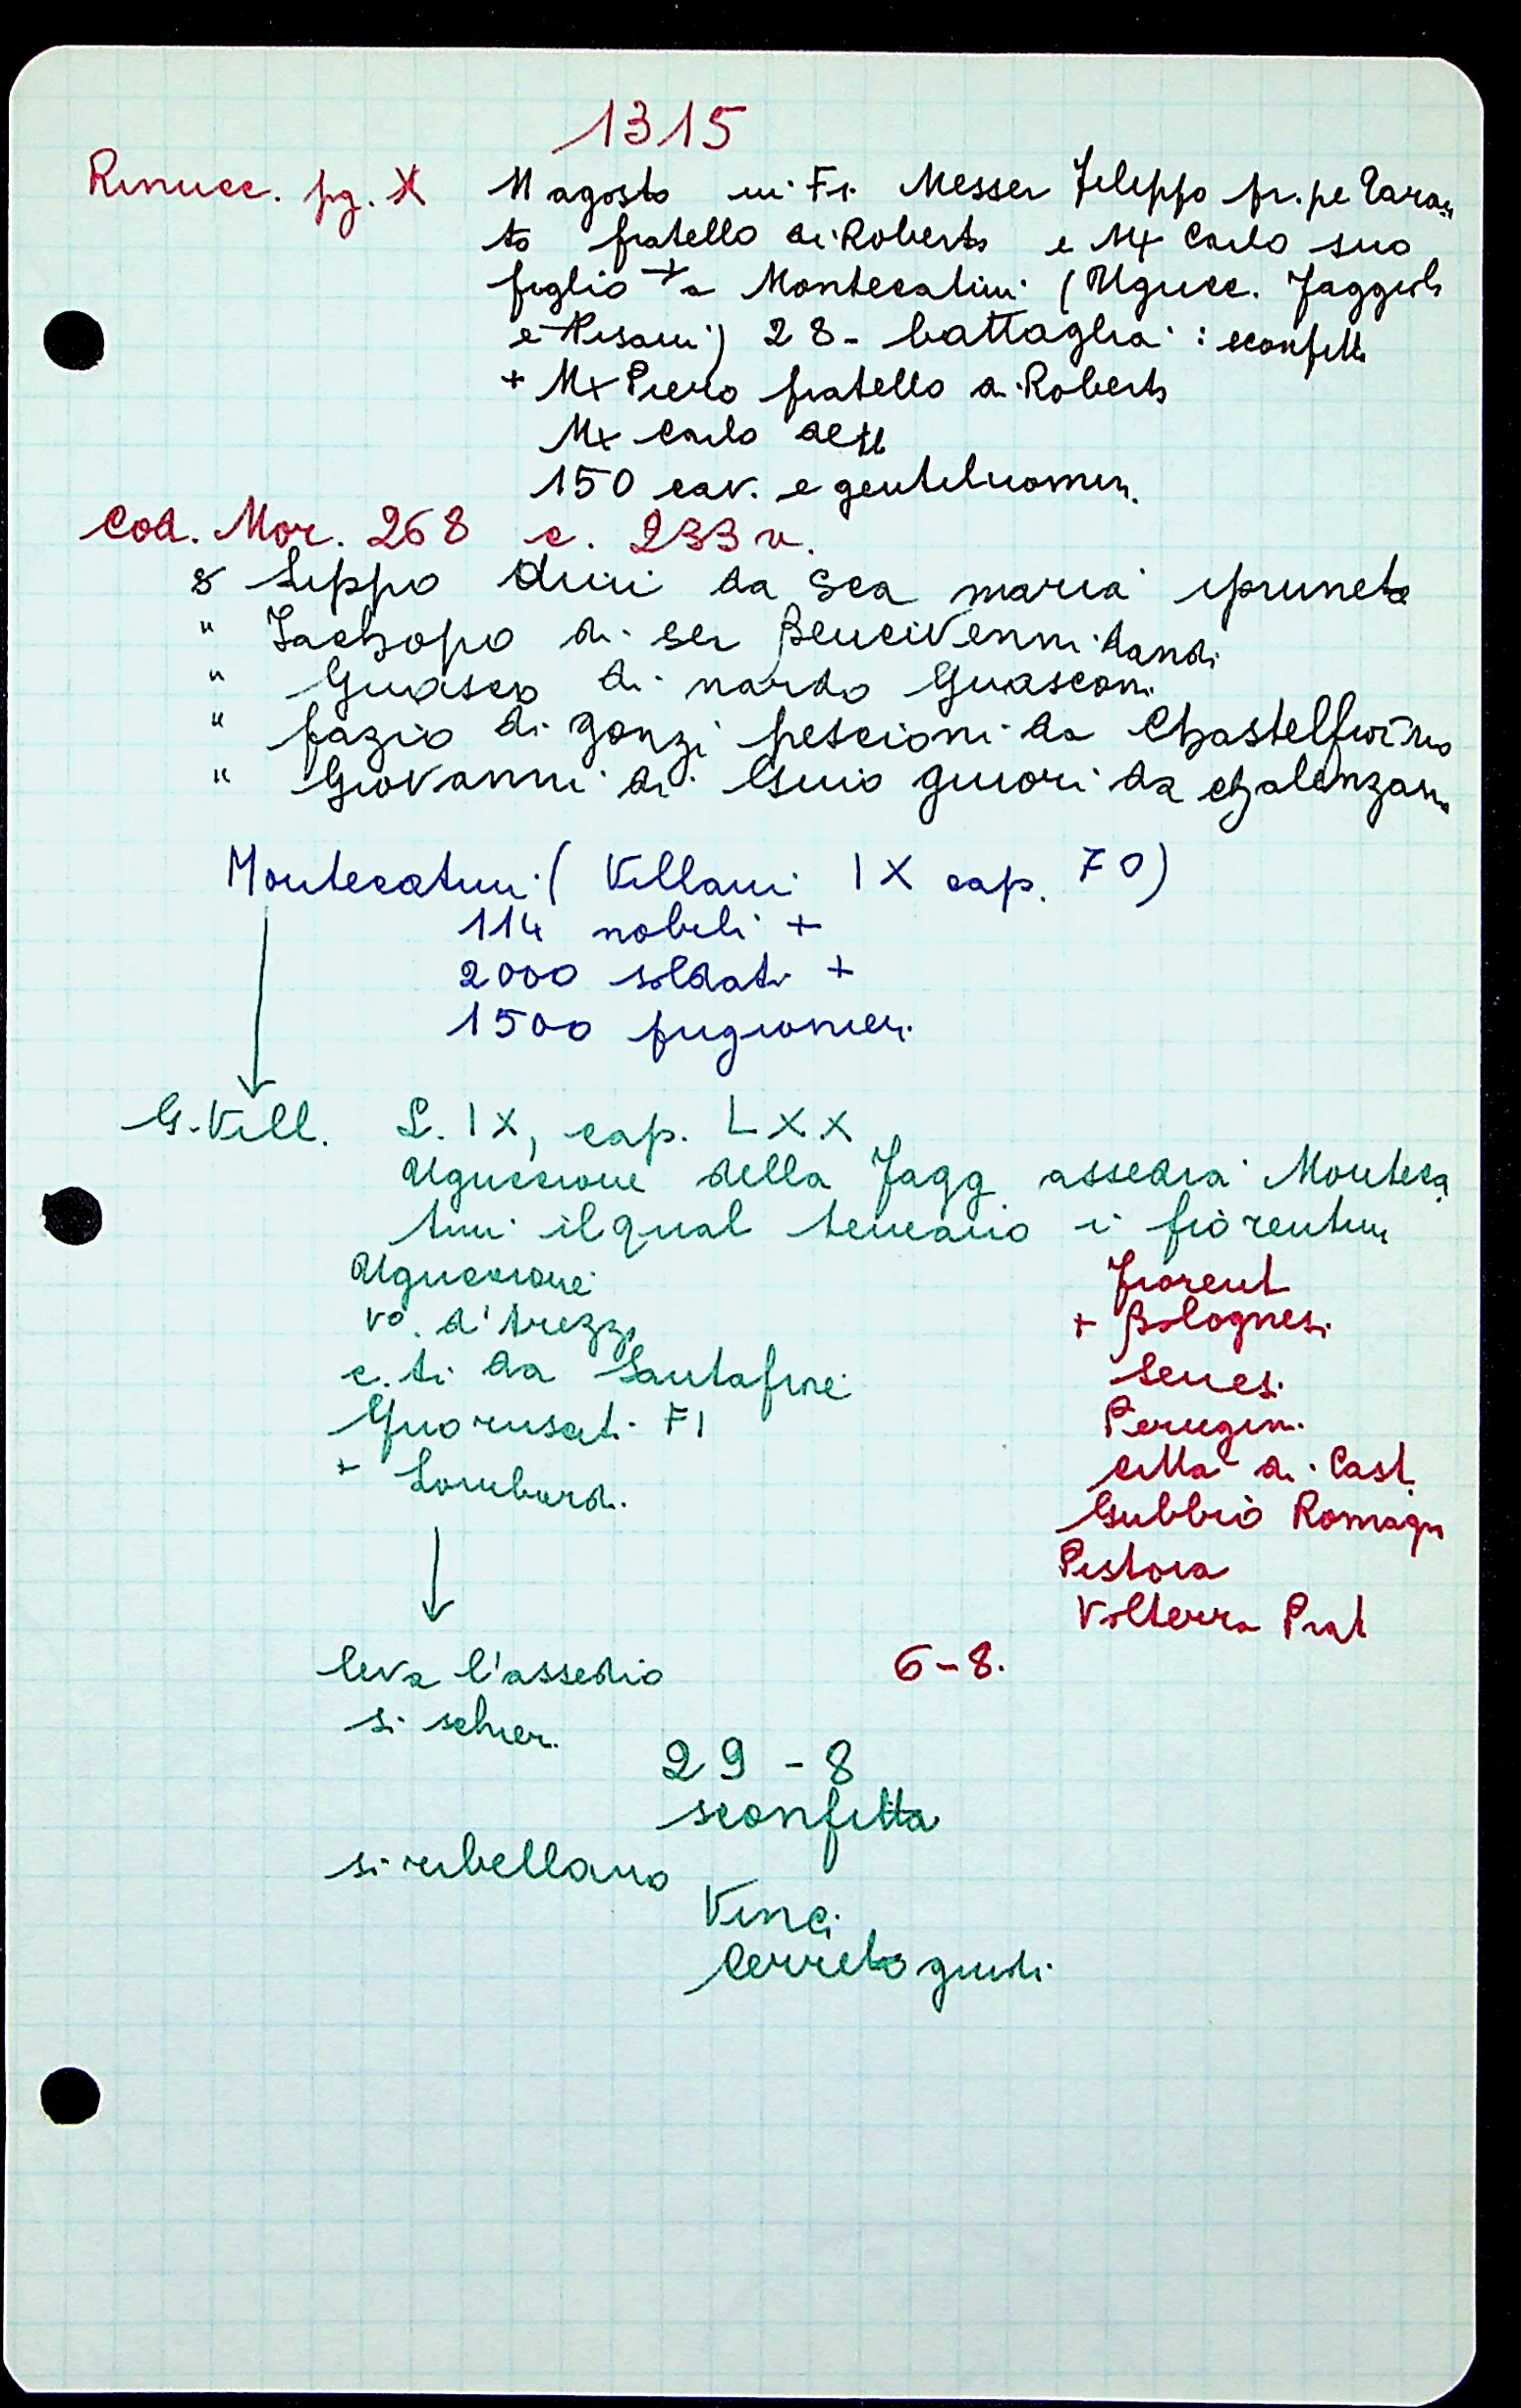 1315
Rinucc. pg. X
11 agosto in Fi. Messer Filippo pr.pe Taran
to fratello di Roberto e Mx Carlo suo
figlio + a Montecatini (Ugucc. Faggiola
e Pisani) 28 - battaglia : sconfitti
+ Mx Piero fratello di Roberto
Mx Carlo detto
150 cav. e gentiluomin.
Cod. Mor. 268 c. 233 v.
S Lippo duti da Sca maria ipruneta
" Jachopo di ser Bencivenni landi
" Guasco di nardo Guasconi
" fazio di gonzi pescioni da Chastelfiorino
" Giovanni di Guio guiori da chalenzano
Montecatini (Villani IX cap. 70)
114 nobili +
2000 soldati +
1500 prigionier.
G. Vill. L. IX, cap. LXX
Uguccione della Fagg assedia Monteca
tini il qual teneano i fiorentini
Uguccione
vo. d'Arezzo
c.ti da Santafiore
fuorusciti FI
+ Lombardi
Fiorent
+ Bolognesi
Senesi
Perugini
citta di Cast.
Gubbio Romagn
Pistoia
Volterra Prat
leva l'assedio
si schier.
6-8.
29-8
sconfitta
si ribellano
Vinci
Cerreto guidi